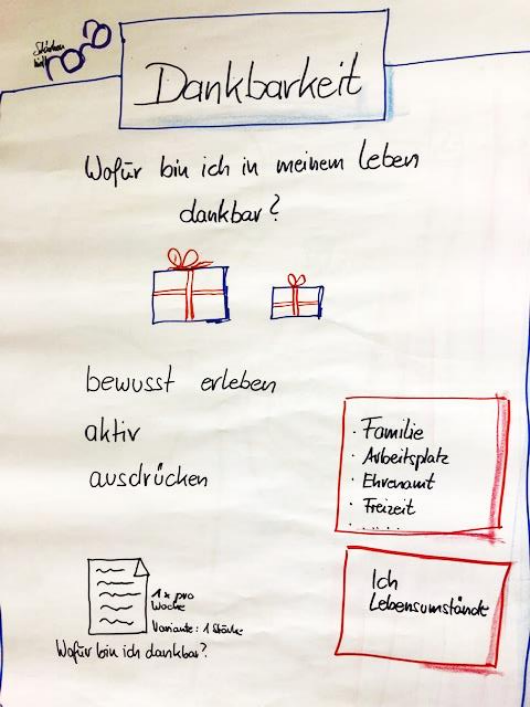 Stärken
Dankbarkeit
Wofür bin ich in meinem Leben
dankbar?
bewusst erleben
aktiv
ausdrücken
· Familie
· Arbeitsplatz
· Ehrenamt
· Freizeit
. .....
Ich
Lebensumstände
1x pro
Woche
Variante: 1 Stärke
Wofür bin ich dankbar?